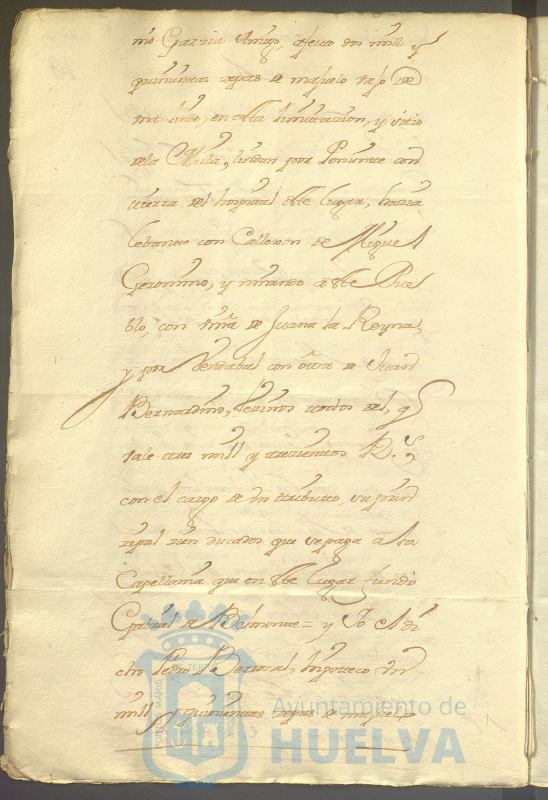 mo Garzia Amigo, afecto dos mill y
quinientas zepas de majuelo vajo de
una linde, en esta limitacion, y sitio
de la Milla, lindan por Poniente con
tierra del hospital deste lugar, hazia
lebante con Callexon de Miguel
Geronimo, y mirando a este Pue
blo, con viña de Juana la Reyna,
y por Vendabal con otra de Juan
Bernardino, vezinos todos del, q
vale tres mill y trezientos R.s
con el cargo de un tributo, su prin
zipal zien ducados que se paga a la
Capellania que en este lugar fundo
Gabriel de Belmonte = y Yo el di
cho Pedro Bexxoral, hipoteco un
mill y quinientas zepas de majuelo
Ayuntamiento de
HUELVA